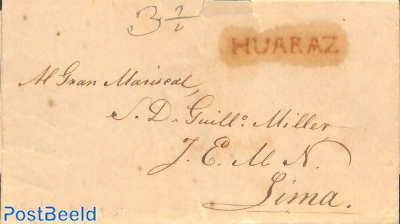 3½
HUARAZ
Al Gran Mariscal,
S. D. Guillo. Miller
J. E. M. N.
Lima.
PostBeeld